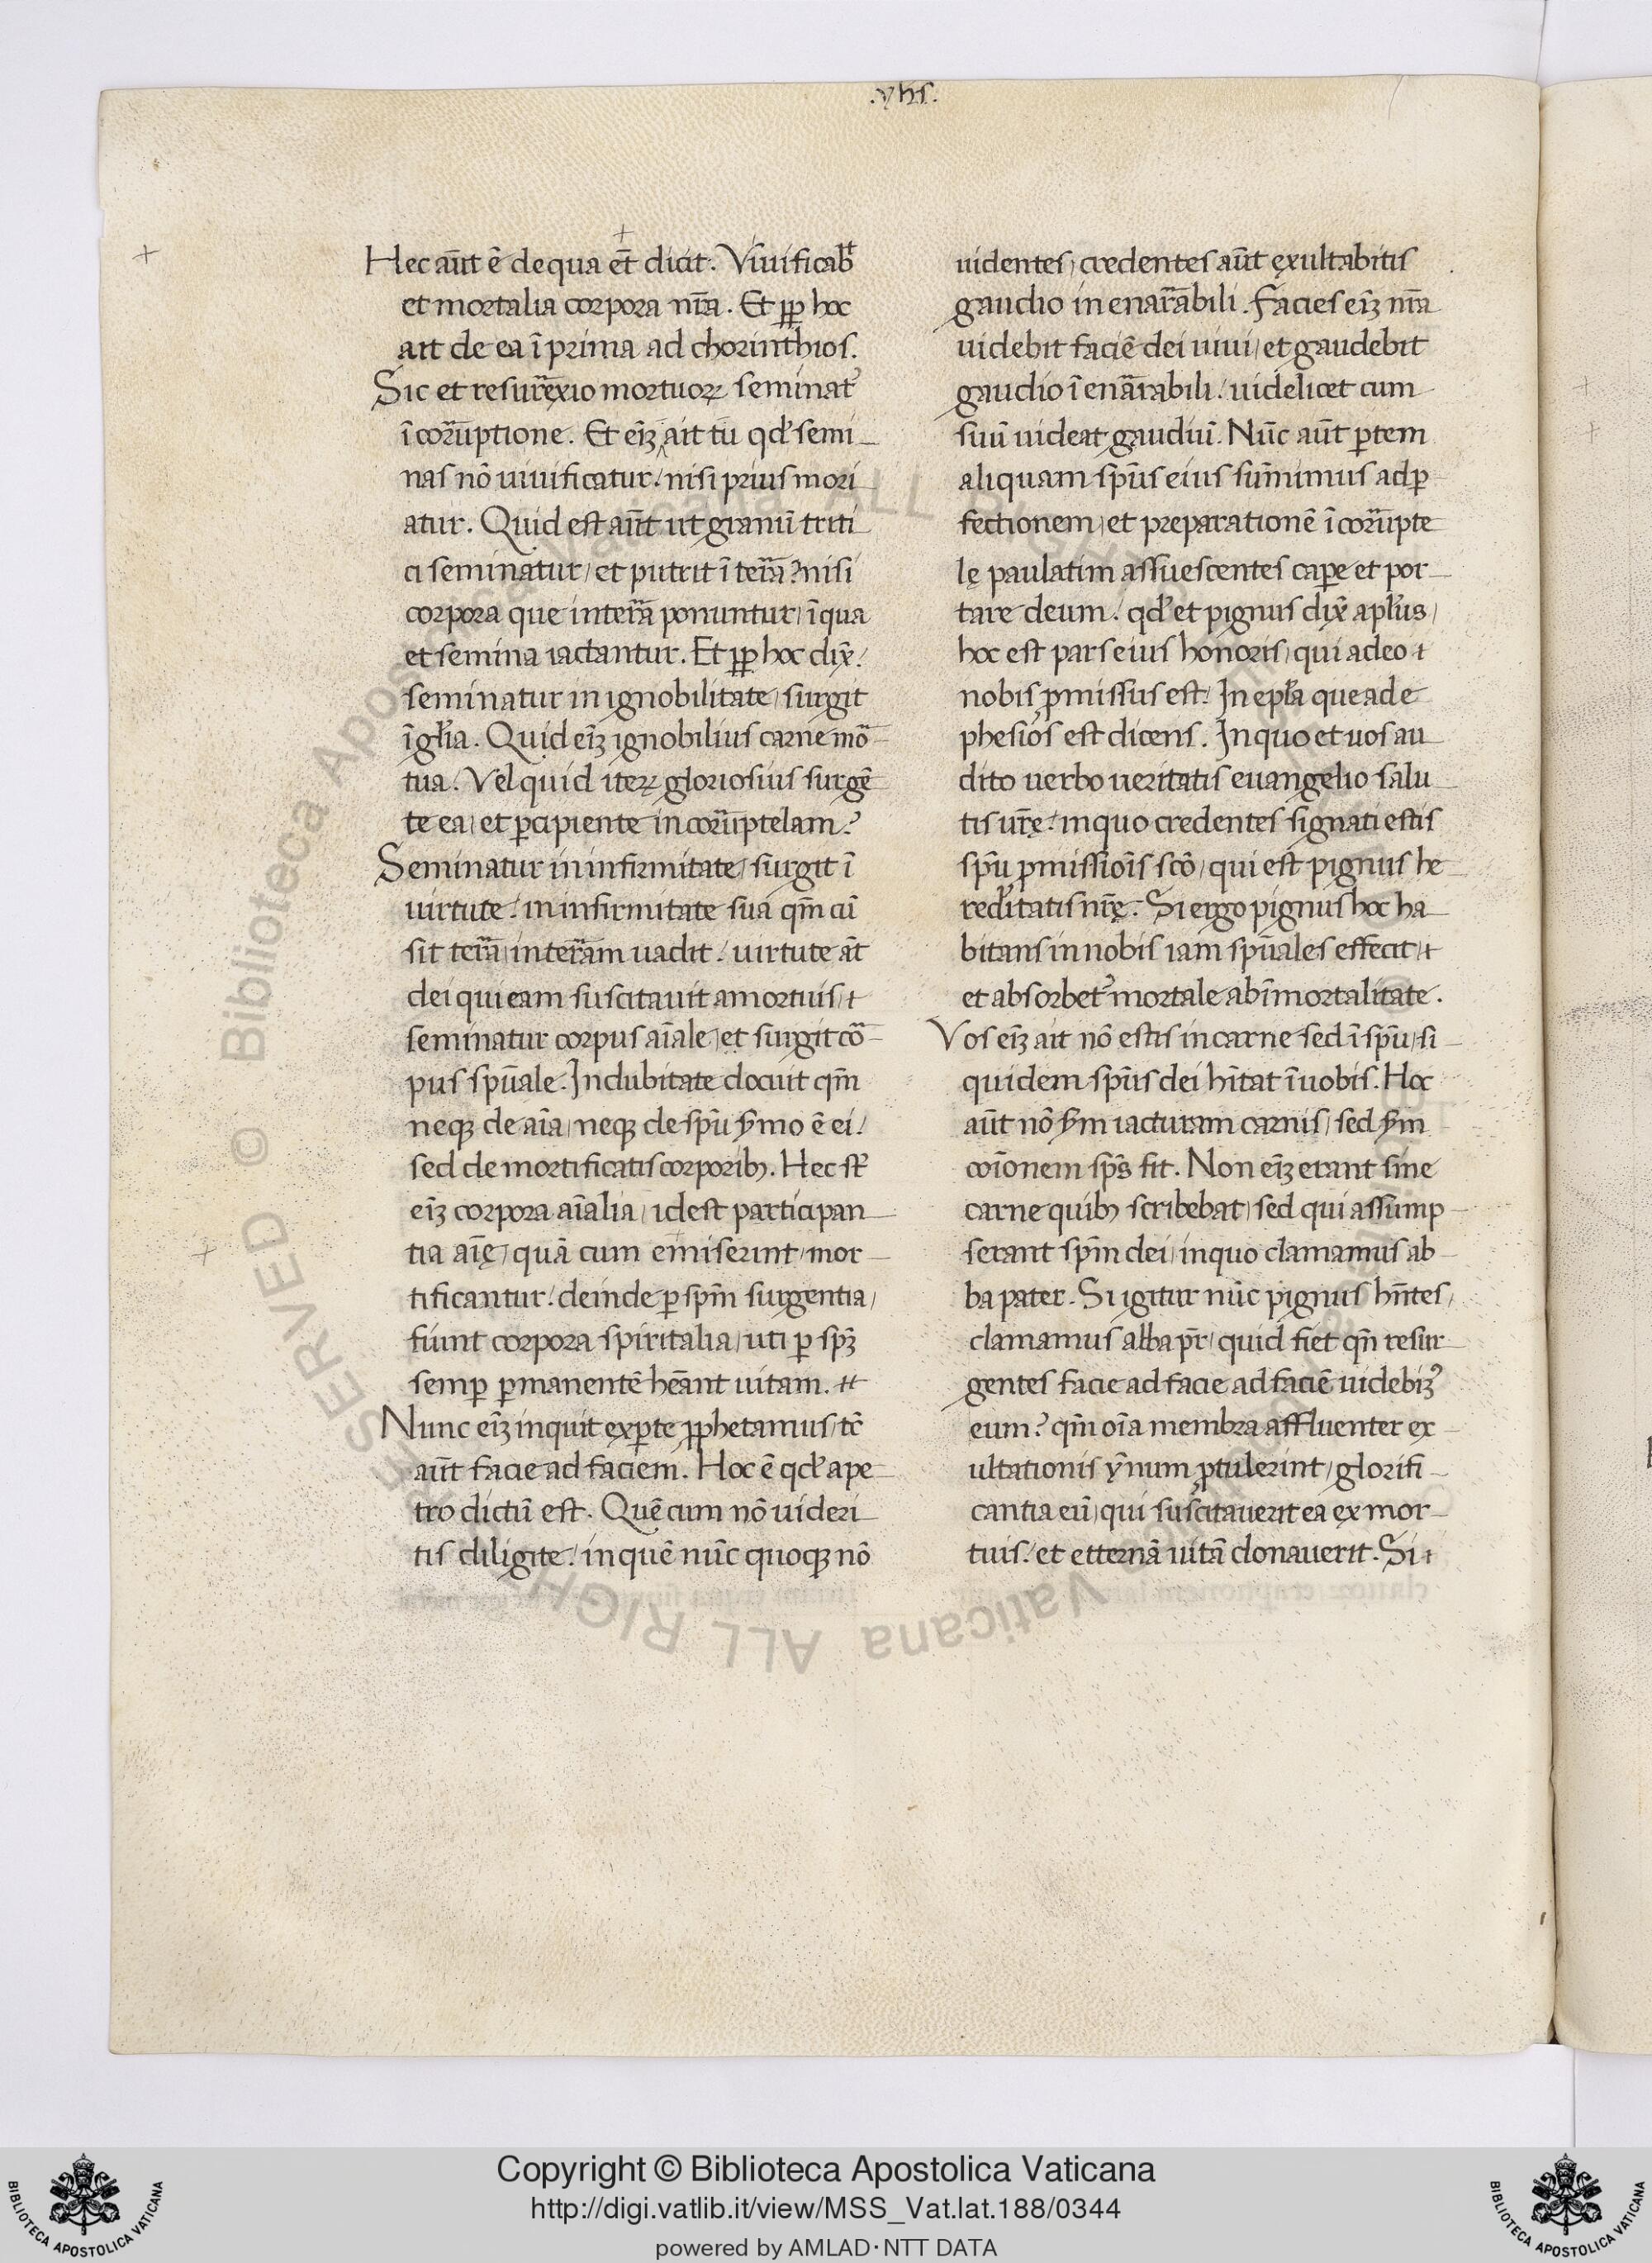 .yhs.
Hec aūt ē de qua et̄ dicit. Viuificabt̄
et mortalia corpora nr̄a. Et pp hoc
ait de ea ī prima ad chorinthios.
Sic et resurrexio mortuoꝝ seminat᷑
ī corruptione. Et eīꝫ ait tū qđ semi-
nas nō uiuificatur/ nisi prius mori-
atur. Quid est aūt ut granū triti-
ci seminatur/ et putrit ī terra? nisi
corpora que in terra ponuntur/ ī qua
et semina iactantur. Et pp hoc dix̄/
seminatur in ignobilitate/ surgit
ī gl̄ia. Quid eīꝫ ignobilius carne mō-
tua. Vel quid iteꝝ gloriosius surgē-
te ea/ et ꝑcipiente incorruptelam?
Seminatur in infirmitate/ surgit ī
uirtute/ in infirmitate sua qm̄ cū
sit terra/ in terram uadit/ uirtute āt
dei qui eam suscitauit a mortuis/
seminatur corpus aīale/ et surgit cō-
pus spūale. Indubitate docuit qm̄
neqꝫ de aīa/ neqꝫ de spū ẏmo ē ei/
sed de mortificatis corporibꝫ. Hec st̄
eīꝫ corpora aīalia/ id est participan-
tia aīę/ quā cum emiserint/ mor-
tificantur/ deinde ꝑ spm̄ surgentia/
fiunt corpora spiritalia/ uti ꝑ spꝫ̄
semꝑ ꝑmanentē heānt uitam.
Nunc eīꝫ inquit ex ꝑte pphetamus/ tc̄
aūt facie ad faciem. Hoc ē qđ a pe-
tro dictū est. Quē cum nō uideri-
tis diligite/ in quē nūc quoqꝫ nō
uidentes/ credentes aūt exultabitis
gaudio inenarrabili. Facies eīꝫ nr̄a
uidebit faciē dei uiui/ et gaudebit
gaudio ī enarrabili/ uidelicet cum
suū uideat gaudiū. Nūc aūt ꝑtem
aliquam spūs eius summimus ad ꝑ-
fectionem/ et preparationē ī corrupte-
lę paulatim assuescentes caꝑe et por-
tare deum. qđ et pignus dix̄ apl̄us/
hoc est pars eius honoris/ qui a deo
nobis ꝓmissus est/ In epl̄a que ad e-
phesios est dicens. In quo et uos au-
dito uerbo ueritatis euangelio salu-
tis ur̄ę/ in quo credentes signati estis
spū ꝓmissiōis scō/ qui est pignus he-
reditatis nr̄ę. Si ergo pignus hoc ha-
bitans in nobis iam spūales effecit/
et absorbet᷑ mortale ab īmortalitate.
Vos eīꝫ ait nō estis in carne sed ī spū/ si-
quidem spūs dei hītat ī uobis. Hoc
aūt nō ẏm iacturam carnis/ sed ẏm
coīonem sps̄ fit. Non eīꝫ erant sine
carne quibꝫ scribebat/ sed qui assump-
serant spm̄ dei/ in quo clamamus ab-
ba pater. Si igitur nūc pignus hn̄tes/
clamamus abba pr̄/ quid fiet qn̄ resur-
gentes facie ad facie ad faciē uidebiꝫ᷒
eum? qm̄ oīa membra affluenter ex-
ultationis ẏnum ꝓtulerint/ glorifi-
cantia eū/ qui suscitauerit ea ex mor-
tuis/ et etternā uitā donauerit. Si
Copyright © Biblioteca Apostolica Vaticana
http://digi.vatlib.it/view/MSS_Vat.lat.188/0344
powered by AMLAD·NTT DATA